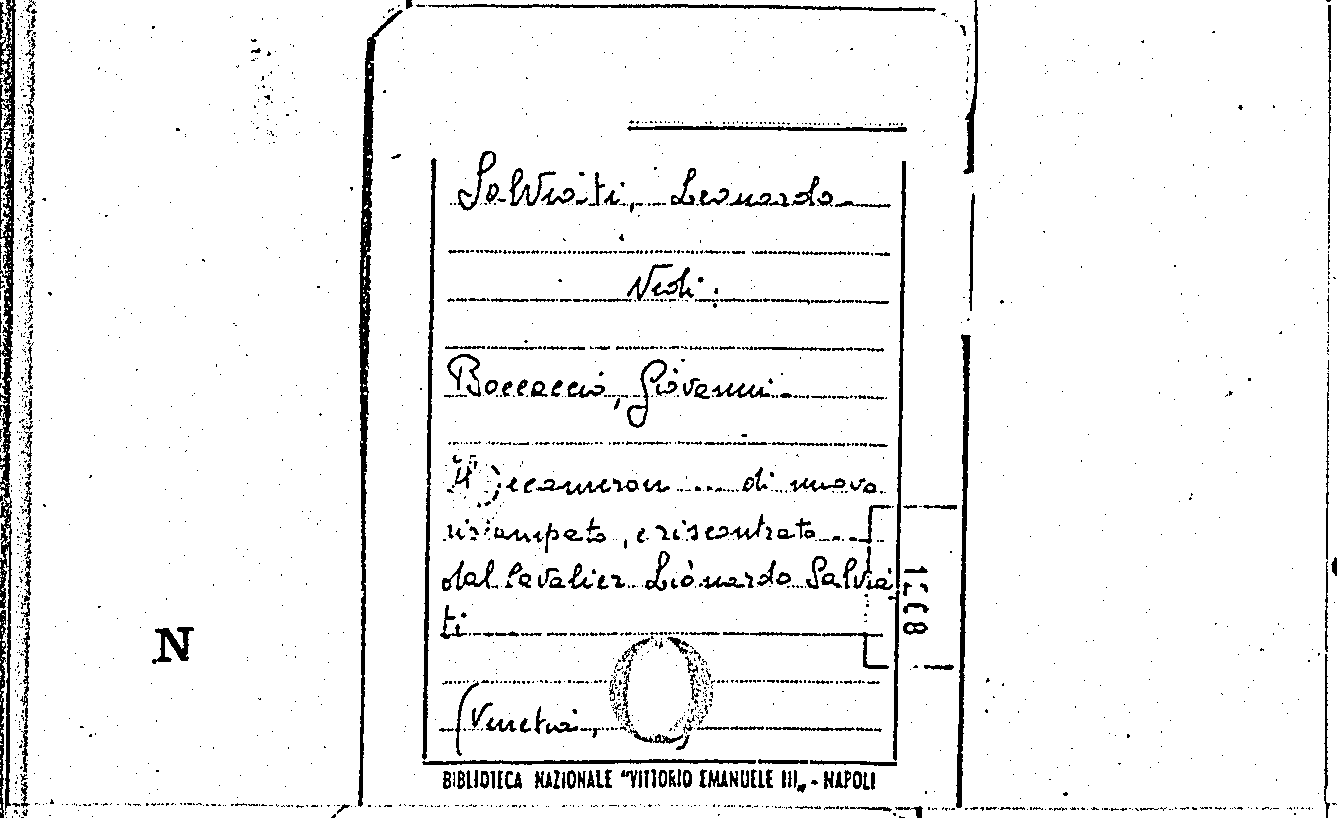 Salviati, Leonardo
Vedi:
Boccaccio, Giovanni
Il Decameron ... di nuovo
ristampato, e riscontrato ...
dal Cavalier Lionardo Salvia
ti
(Venetia,
N
BIBLIOTECA NAZIONALE "VITTORIO EMANUELE III„ - NAPOLI